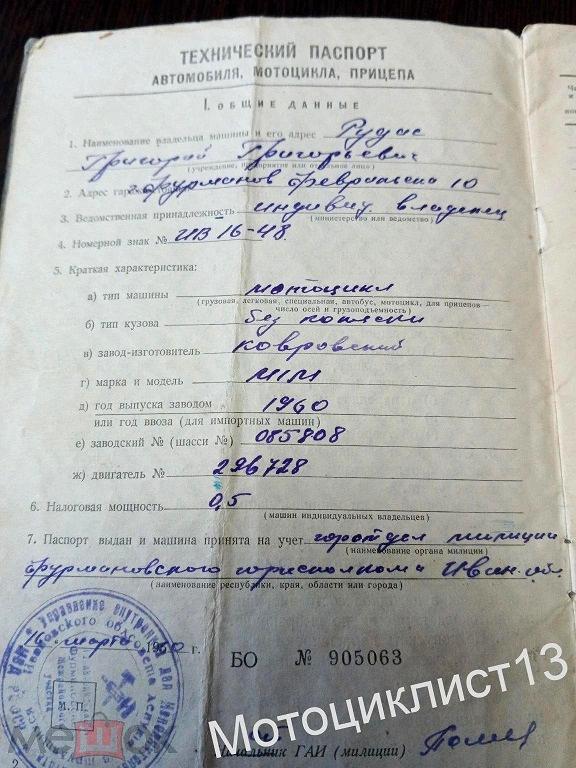 ТЕХНИЧЕСКИЙ ПАСПОРТ
АВТОМОБИЛЯ, МОТОЦИКЛА, ПРИЦЕПА
I. ОБЩИЕ ДАННЫЕ
1. Наименование владельца машины и его адрес Рудас
Григорий Григорьевич
(учреждение, предприятие или отдельное лицо)
2. Адрес г. Фурманов Февральская 10
3. Ведомственная принадлежность индивид. владелец
(министерство или ведомство)
4. Номерной знак № ИВ 16-48.
5. Краткая характеристика:
а) тип машины мотоцикл
(грузовая, легковая, специальная, автобус, мотоцикл, для прицепов—
число осей и грузоподъемность)
б) тип кузова без коляски
в) завод-изготовитель ковровский
г) марка и модель М1М
д) год выпуска заводом 1960
или год ввоза (для импортных машин)
е) заводский № (шасси №) 085808
ж) двигатель № 296728
6. Налоговая мощность 0,5
(машин индивидуальных владельцев)
7. Паспорт выдан и машина принята на учет горотдел милиции
(наименование органа милиции)
Фурмановского горисполкома Иван. обл.
(наименование республики, края, области или города)
16 марта 1960 г. БО № 905063
М. П.
Начальник ГАИ (милиции)
Мешок
Мотоциклист13